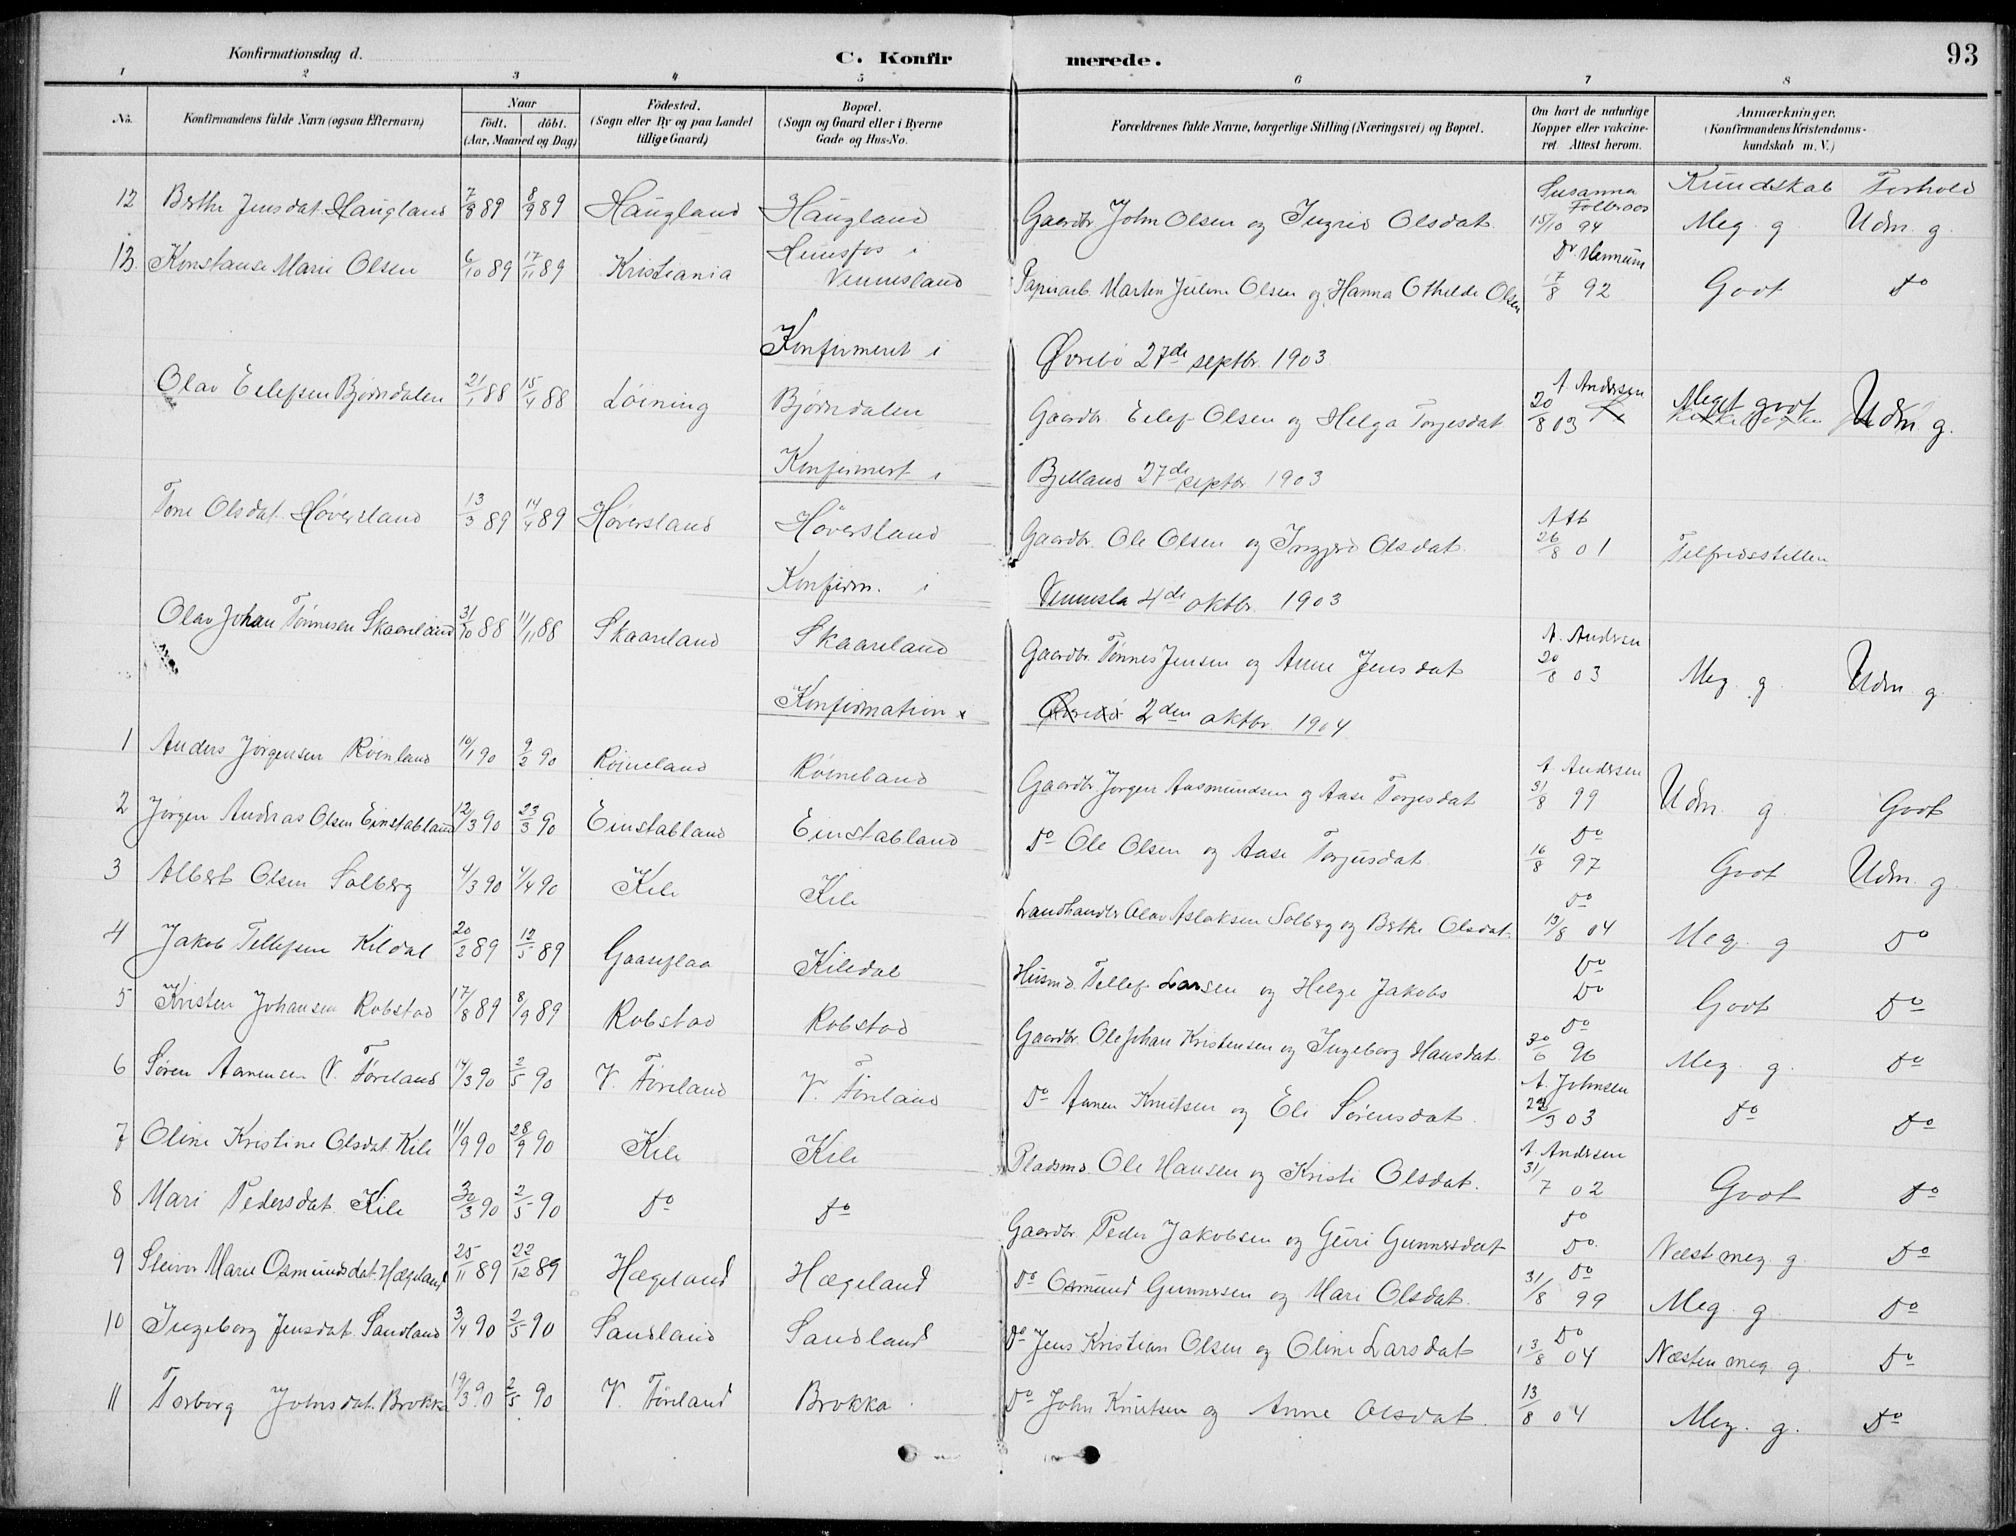 Konfirmationsdag d. C. Konfirmerede. 93
1 2 3 4 5 6 7 8
No. Konfirmandens fulde Navn (ogsaa Efternavn) Naar født. døbt. (Aar, Maaned og Dag) Fødested. (Sogn eller By og paa Landet tillige Gaard) Bopæl. (Sogn og Gaard eller i Byerne Gade og Hus-No. Forældrenes fulde Navne, borgerlige Stilling (Næringsvei) og Bopæl. Om havt de naturlige Kopper eller vakcineret Attest herom. Anmærkninger. (Konfirmandens Kristendomskundskab m. V.)
Kundskab Forhold
12 Berthe Jensdat. Haugland 7/8 89 8/9 89 Haugland Haugland Gaardbr. John Olsen og Ingrid Olsdat. Susanna Folbroos 15/10 94 Meg. g. Udm. g.
13. Konstanse Marie Olsen 6/10 89 17/11 89 Kristiania Hunsfos i Vennesland Papirarb. Martin Julius Olsen og Hanna Othilde Olsen Dr Hennum 17/8 92 Godt Do
Konfirmeret i Øvrebø 27de septbr. 1903
Olav Eilefsen Bjørndalen 21/1 88 15/4 88 Løining Bjørndalen Gaardbr. Eilef Olsen og Helga Torjesdat A Andersen 20/8 03 Meget godt Udm. g.
Konfirmert i Bjelland 27de septbr 1903
Tone Olsdat. Høversland 13/3 89 14/4 89 Høversland Høversland Gaardbr. Ole Olsen og Ingjerd Olsdat. Att 26/8 01 Tilfredsstillen
Konfirm. i Vennesla 4de oktbr. 1903
Olav Johan Tønnesen Skaareland 31/10 88 11/11 88 Skaareland Skaareland Gaardbr. Tønnes Jensen og Anne Jensdat A. Andersen 20/8 03 Meg. g. Udm g.
Konfirmation Øvrebø 2den oktbr. 1904
1 Anders Jørgensen Røinland 10/1 90 9/2 90 Røineland Røineland Gaardbr. Jørgen Aasmundsen og Aase Torjesdat A Andersen 31/8 99 Udm. g. Godt
2 Jørgen Andreas Olsen Einstabland 12/3 90 23/3 90 Einstabland Einstabland Do Ole Olsen og Aase Torjusdat. Do 16/8 97 Godt Udm. g.
3 Albert Olsen Solberg 4/3 90 4/4 90 Kile Kile Landhandler Olav Aslaksen Solberg og Berthe Olsdat. Do 13/8 04 Meg. g Do
4 Jakob Tellefsen Kildal 20/2 89 12/5 89 Gaaseflaa Kiledal Husmd. Tellef Larsen og Helge Jakobs Do Do Godt Do
5 Kristen Johansen Robstad 17/8 89 8/9 89 Robstad Robstad Gaardbr. Ole Johan Kristensen og Ingeborg Hansdat. Do 30/6 96 Meg. g. Do
6 Søren Aanensen V. Føreland 14/3 90 2/5 90 V. Føreland V. Føreland Do Aanen Knutsen og Eli Sørensdat. A. Johnsen 29/3 03 Do Do
7 Oline Kristine Olsdat. Kile 11/9 90 28/9 90 Kile Kile Pladsmd. Ole Hansen og Kristi Olsdat. A Andersen 31/7 02 Godt Do
8 Mari Pedersdat. Kile 30/3 90 2/5 90 Do Do Gaardbr. Peder Jakobsen og Guri Gunnersdat Do Do Næst meg. g. Do
9 Steivor Marie Osmundsdat. Hægeland 25/11 89 22/12 89 Hægeland Hægeland Do Osmund Gunnersen og Mari Olsdat. Do 31/8 99 Meg. g. Do
10 Ingeborg Jensdat. Sandland 3/4 90 2/5 90 Sandland Sandland Do Jens Kristian Olsen og Oline Larsdat Do 13/8 04 Næsten meg. g. Do
11 Torborg Johnsdat. Brokka 19/3 90 2/5 90 V. Føreland Brokka Do John Knutsen og Anne Olsdat. 13/8 04 Meg. g. Do